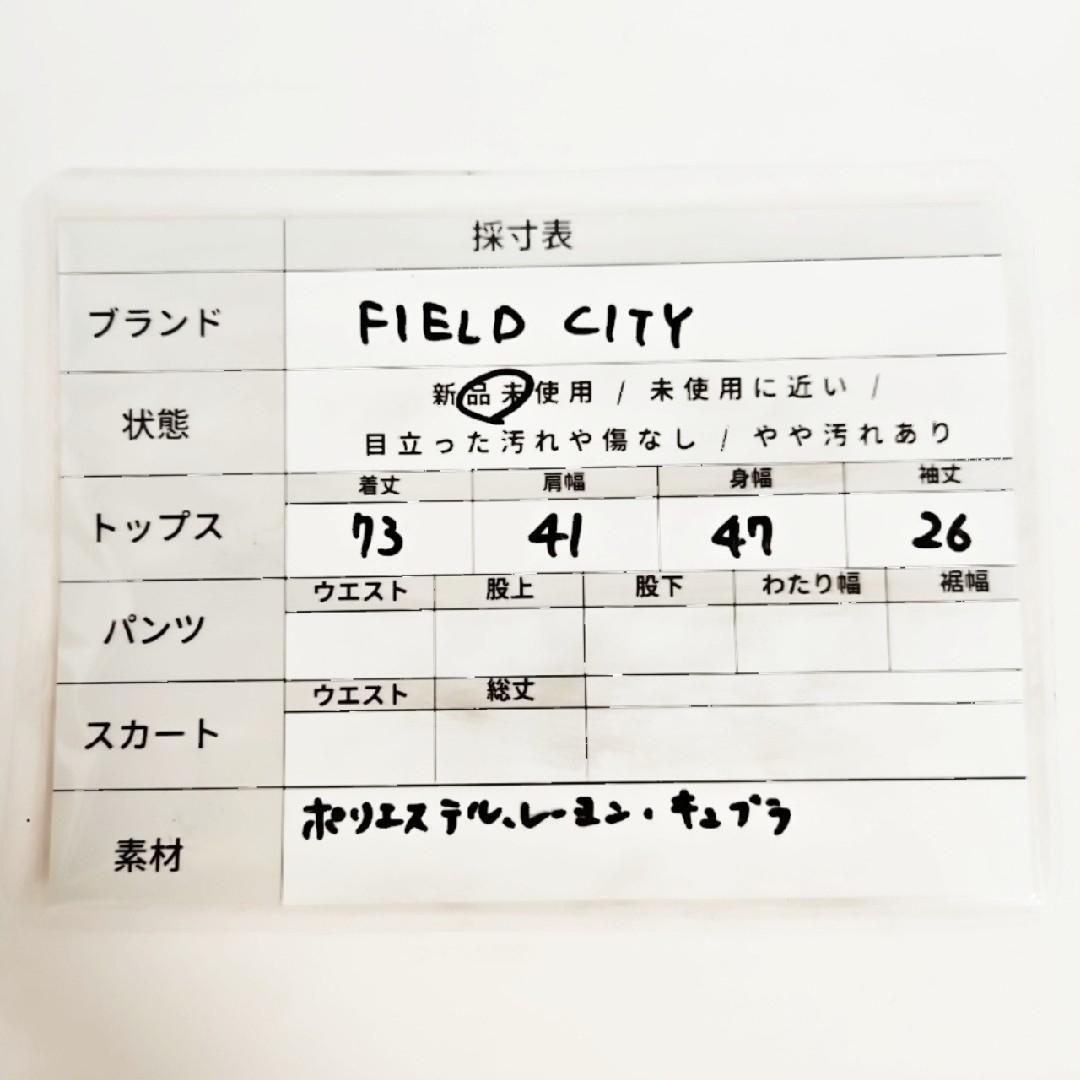 採寸表
ブランド FIELD CITY
状態 新品未使用 / 未使用に近い /
目立った汚れや傷なし / やや汚れあり
着丈 肩幅 身幅 袖丈
トップス 73 41 47 26
ウエスト 股上 股下 わたり幅 裾幅
パンツ
ウエスト 総丈
スカート
素材 ポリエステル、レーヨン・キュプラ